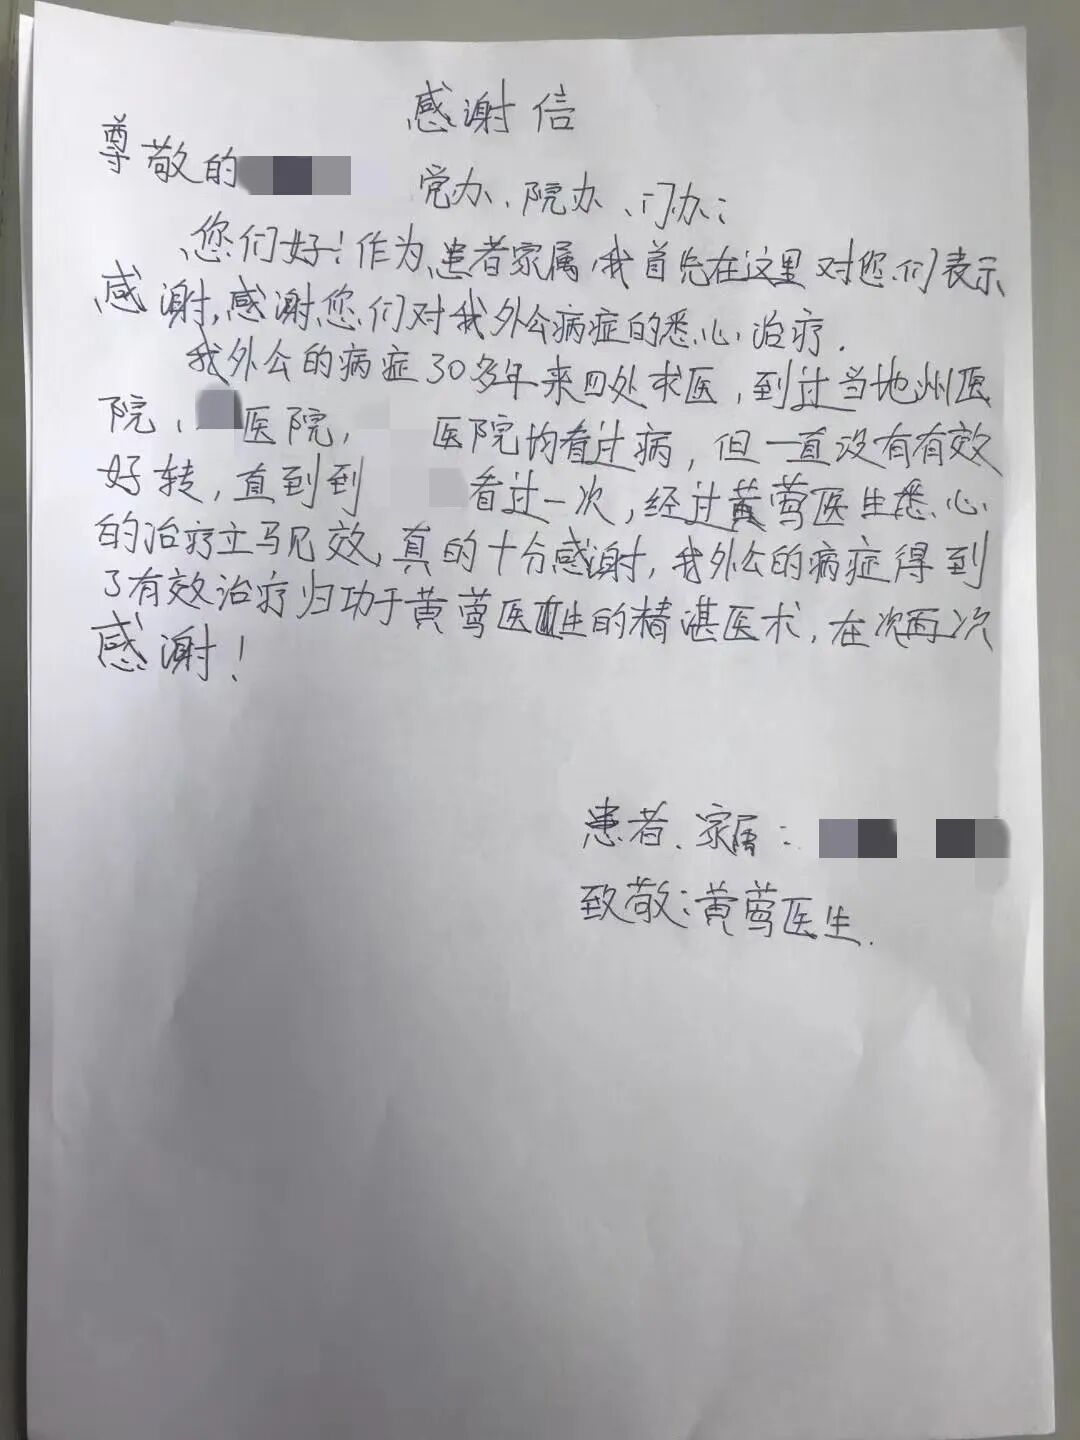 感谢信
尊敬的 党办、院办、门办：
您们好！作为患者家属，我首先在这里对您们表示
感谢，感谢您们对我外公病症的悉心治疗.
我外公的病症30多年来四处求医，到过当地州医
院、医院，医院均看过病，但一直没有有效
好转，直到到 看过一次，经过黄莺医生悉心
的治疗立马见效，真的十分感谢，我外公的病症得到
了有效治疗归功于黄莺医生的精湛医术，在次再次
感谢！
患者、家属：
致敬：黄莺医生.